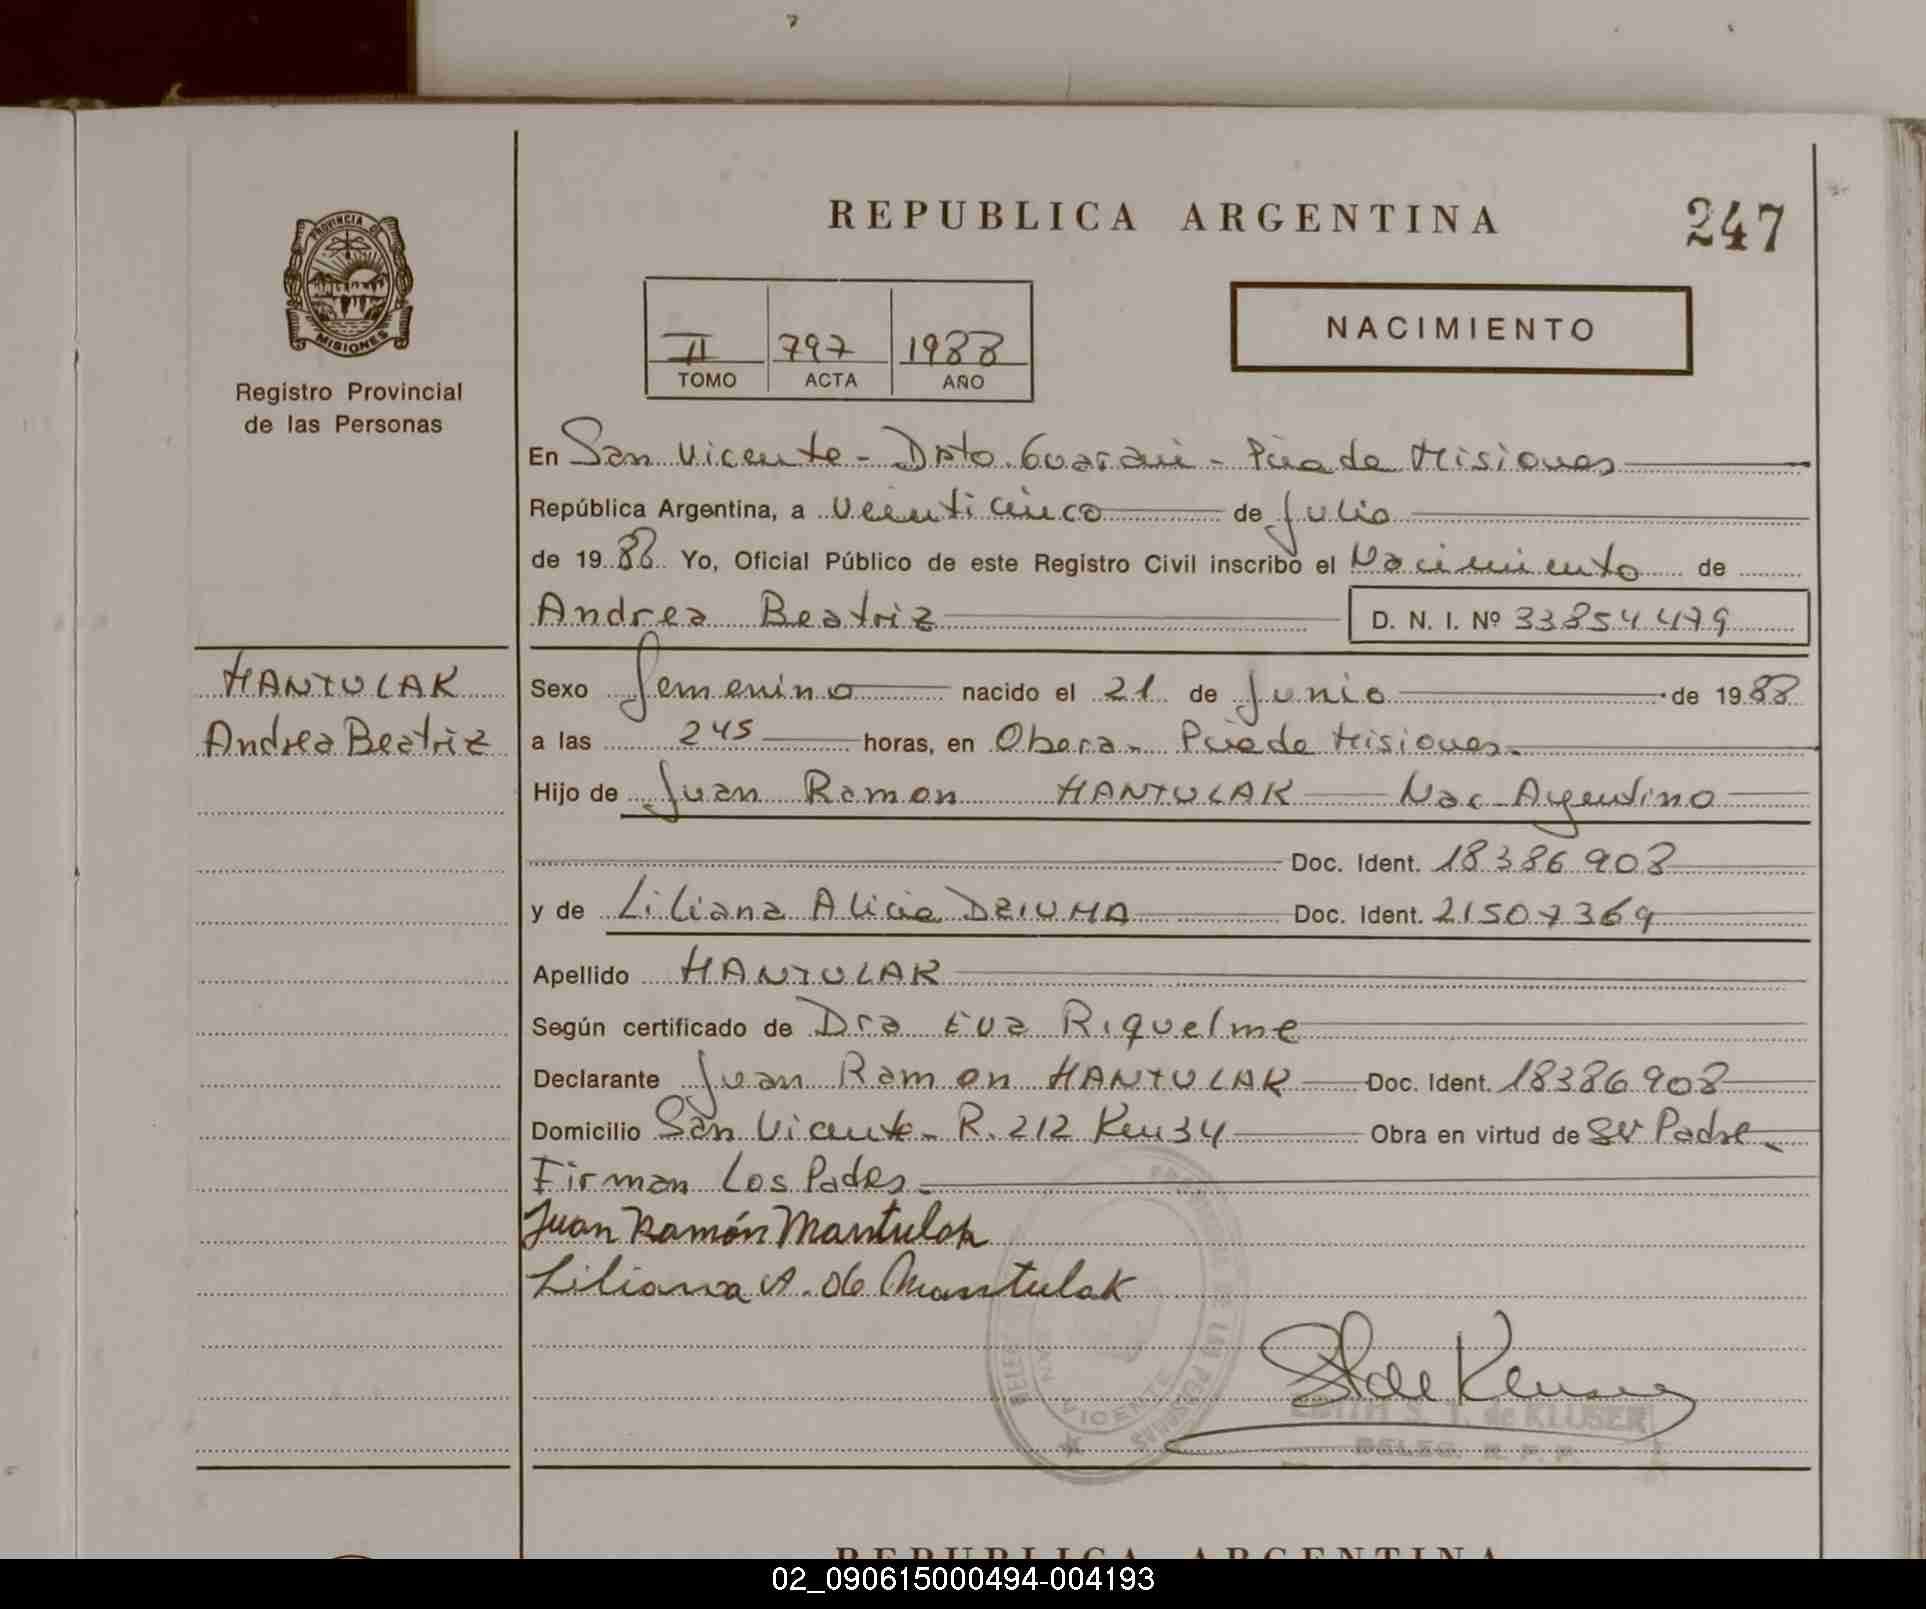 REPUBLICA ARGENTINA
247
PROVINCIA DE
MISIONES
Registro Provincial
de las Personas
II 797 1988
TOMO ACTA AÑO
NACIMIENTO
En San Vicente - Dpto. Guarani - Pcia de Misiones
República Argentina, a veinticinco de Julio
de 19 88 Yo, Oficial Público de este Registro Civil inscribo el Nacimiento de
Andrea Beatriz D. N. I. Nº 33854479
MANTULAK
Andrea Beatriz
Sexo Femenino nacido el 21 de Junio de 19 88
a las 245 horas, en Obera - Pcia de Misiones.
Hijo de Juan Ramon MANTULAK Nac Argentino
Doc. Ident. 18386908
y de Liliana Alicia DZIUMA Doc. Ident. 21507369
Apellido MANTULAK
Según certificado de Dra Eva Riquelme
Declarante Juan Ramon MANTULAK Doc. Ident. 18386908
Domicilio San Vicente - R. 212 Km 34 Obra en virtud de ser Padre.
Firman Los Padres.
Juan Ramón Mantulak
Liliana A. de Mantulak
VICENTE
EDITH S. T. de KLUSER
DELEG. R. P. P.
REPUBLICA ARGENTINA
02_090615000494-004193